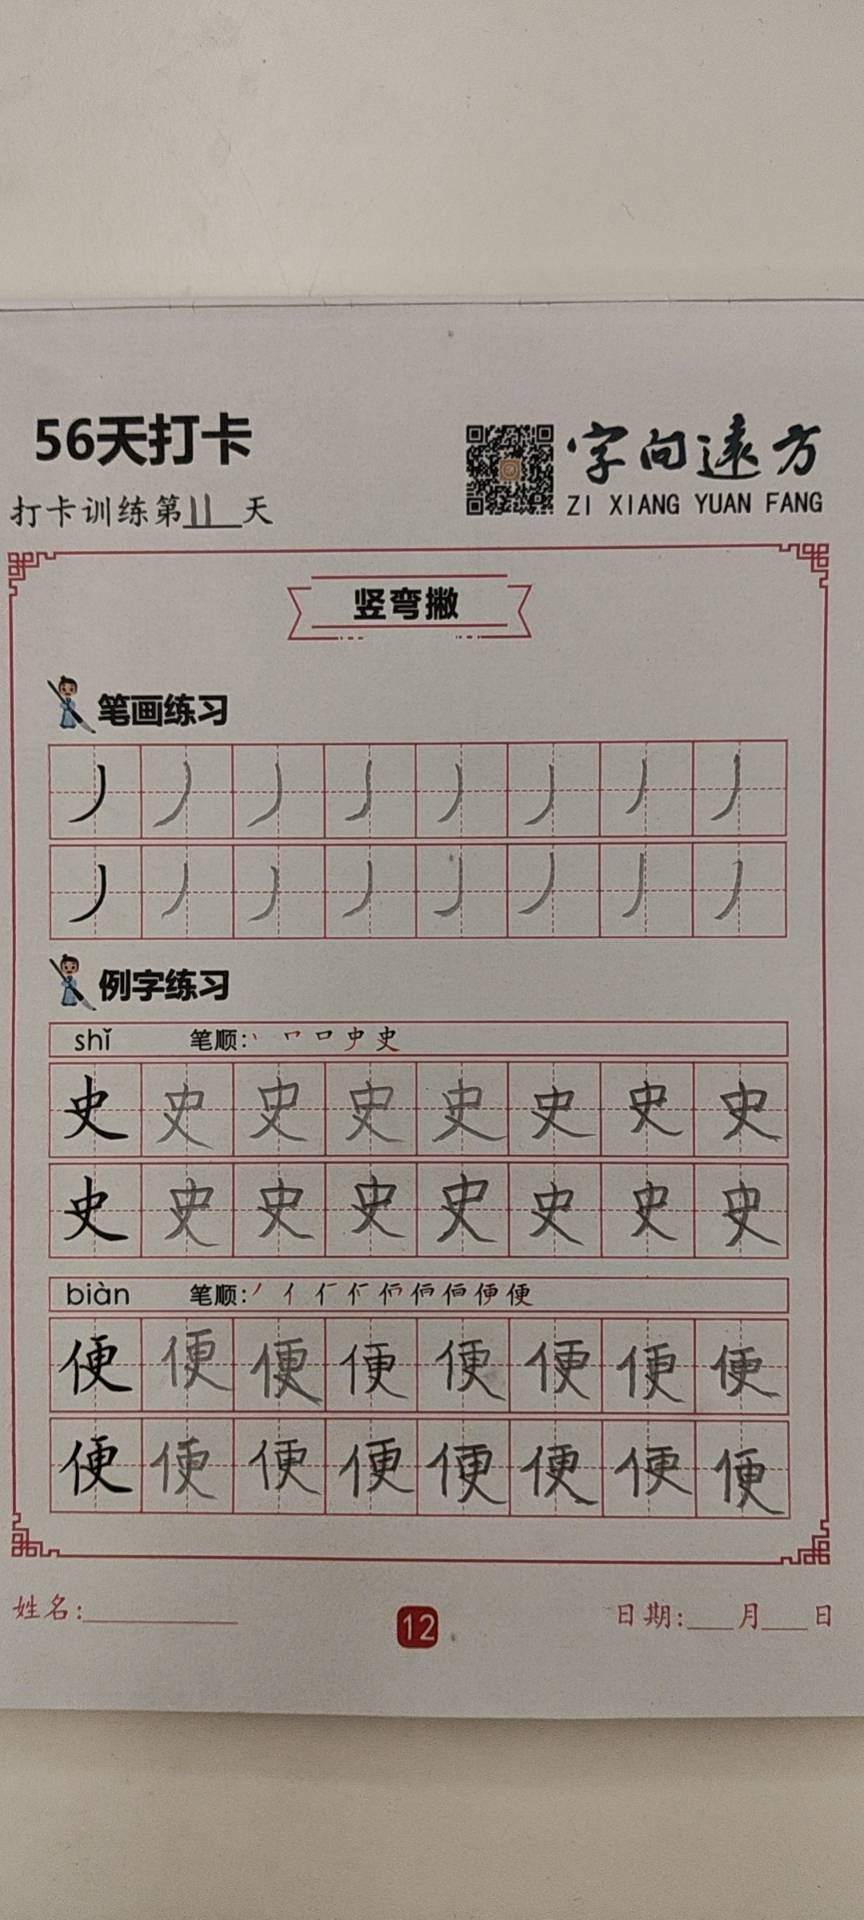 56天打卡
字向遠方
ZI XIANG YUAN FANG
打卡训练第11天
竖弯撇
笔画练习
丿丿丿丿丿丿丿丿
丿丿丿丿丿丿丿丿
例字练习
shǐ 笔顺:
史史史史史史史史
史史史史史史史史
biàn 笔顺:
便便便便便便便便
便便便便便便便便
姓名:
12
日期:___月___日